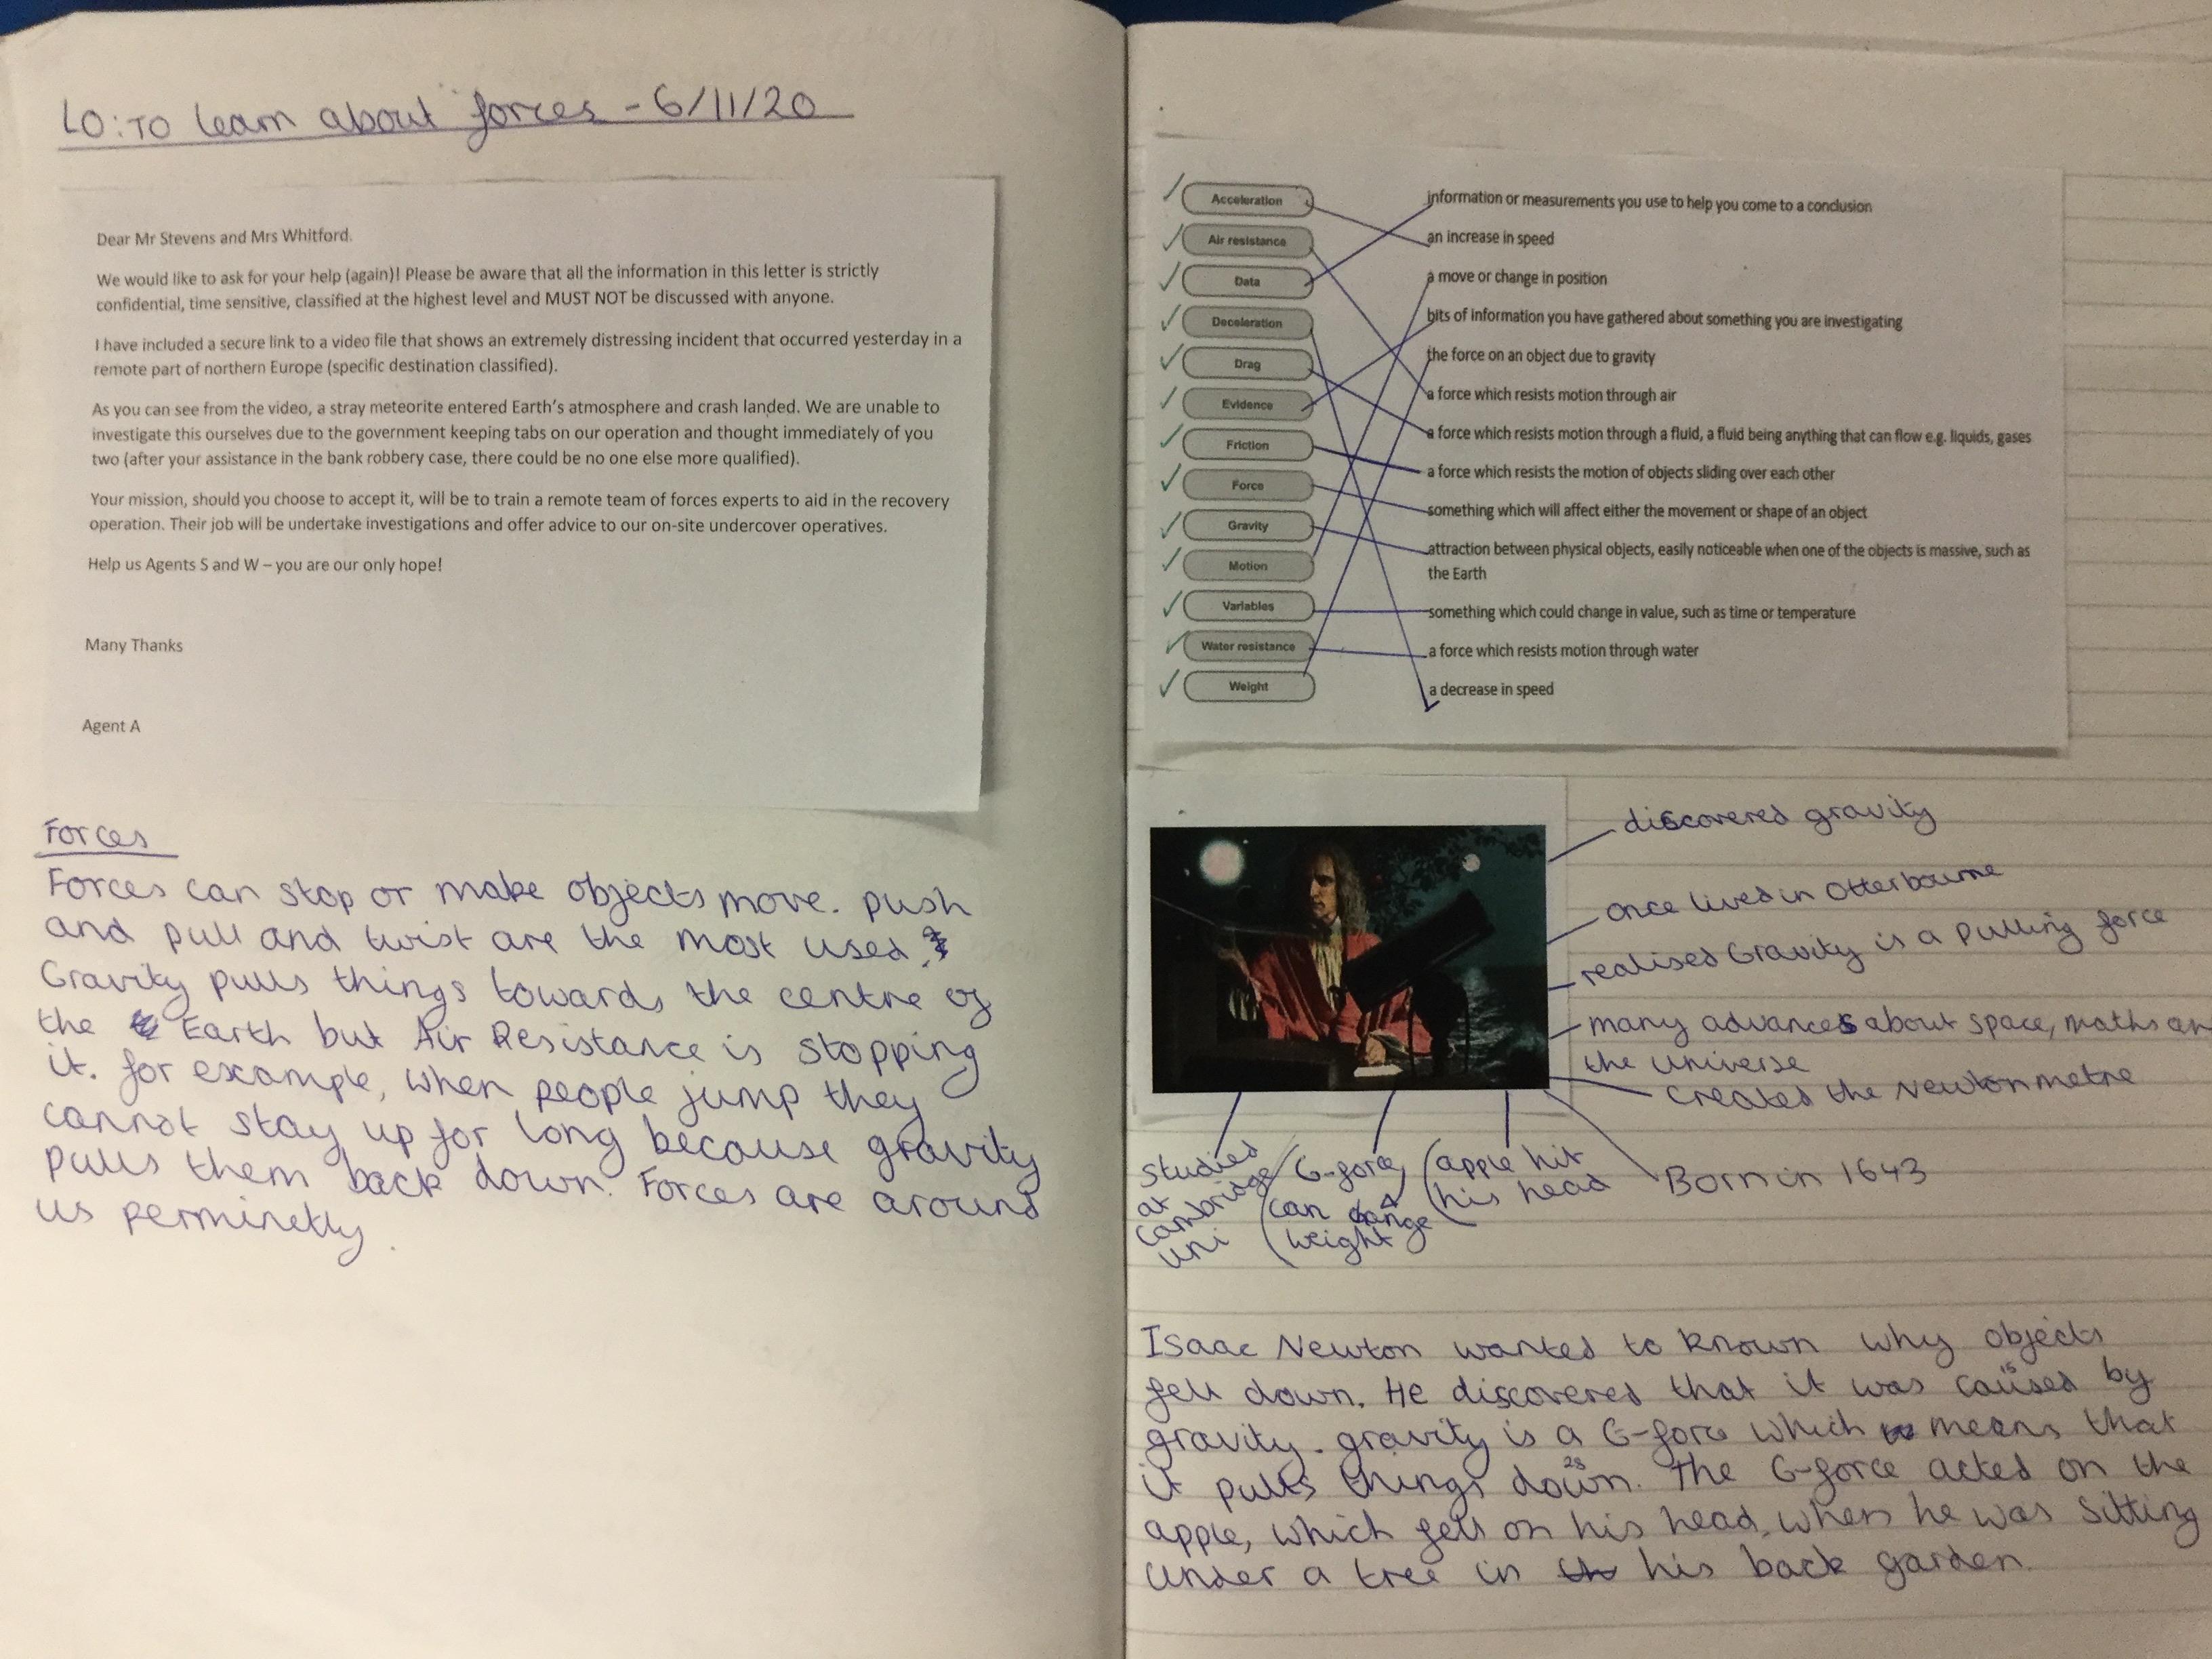 LO: TO learn about forces - 6/11/20
Dear Mr Stevens and Mrs Whitford.
We would like to ask for your help (again)! Please be aware that all the information in this letter is strictly
confidential, time sensitive, classified at the highest level and MUST NOT be discussed with anyone.
I have included a secure link to a video file that shows an extremely distressing incident that occurred yesterday in a
remote part of northern Europe (specific destination classified).
As you can see from the video, a stray meteorite entered Earth's atmosphere and crash landed. We are unable to
investigate this ourselves due to the government keeping tabs on our operation and thought immediately of you
two (after your assistance in the bank robbery case, there could be no one else more qualified).
Your mission, should you choose to accept it, will be to train a remote team of forces experts to aid in the recovery
operation. Their job will be undertake investigations and offer advice to our on-site undercover operatives.
Help us Agents S and W – you are our only hope!
Many Thanks
Agent A
Forces
Forces can stop or make objects move. push
and pull and twist are the most used.
Gravity pulls things towards the centre of
the Earth but Air Resistance is stopping
it. for example, when people jump they
cannot stay up for long because gravity
pulls them back down. Forces are around
us perminetly.
Acceleration
Air resistance
Data
Deceleration
Drag
Evidence
Friction
Force
Gravity
Motion
Variables
Water resistance
Weight
information or measurements you use to help you come to a conclusion
an increase in speed
a move or change in position
bits of information you have gathered about something you are investigating
the force on an object due to gravity
a force which resists motion through air
a force which resists motion through a fluid, a fluid being anything that can flow e.g. liquids, gases
a force which resists the motion of objects sliding over each other
something which will affect either the movement or shape of an object
attraction between physical objects, easily noticeable when one of the objects is massive, such as
the Earth
something which could change in value, such as time or temperature
a force which resists motion through water
a decrease in speed
discovered gravity
once lived in Otterbourne
realised Gravity is a pulling force
many advances about space, maths an
the universe
created the Newton metre
Born in 1643
apple hit
his head
G-force
can change
weight
studied
at
cambridge
uni
Isaac Newton wanted to known why objects
fell down. He discovered that it was caused by
gravity. gravity is a G-force which means that
it pulls things down. The G-force acted on the
apple, which fell on his head, when he was sitting
under a tree in his back garden.